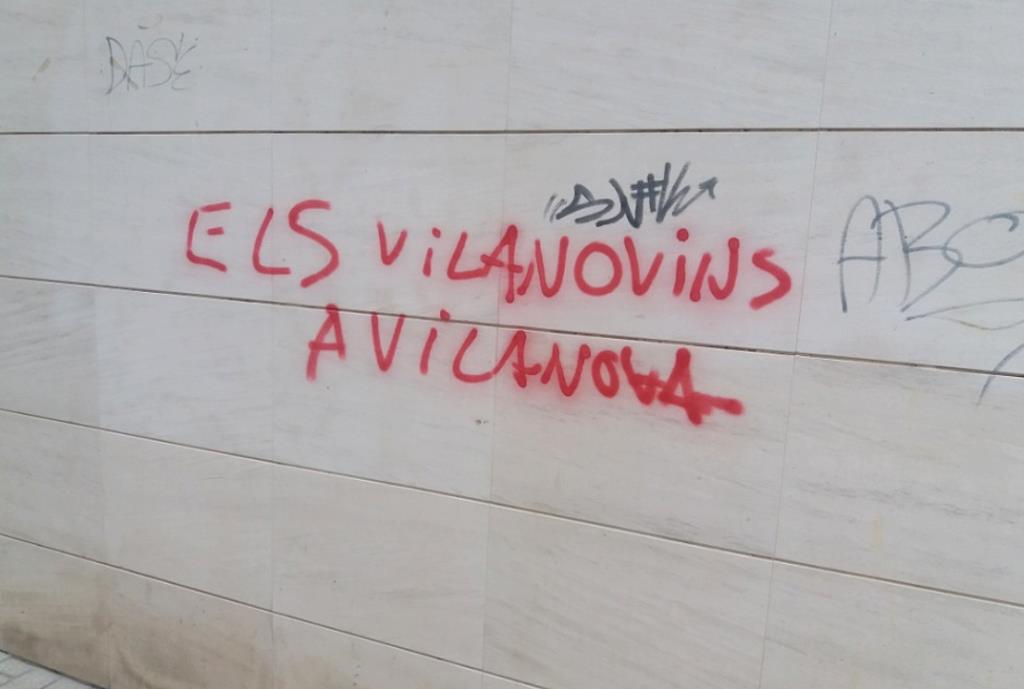 DASE
ELS ViLANOViNS
A ViLANOVA
ABC